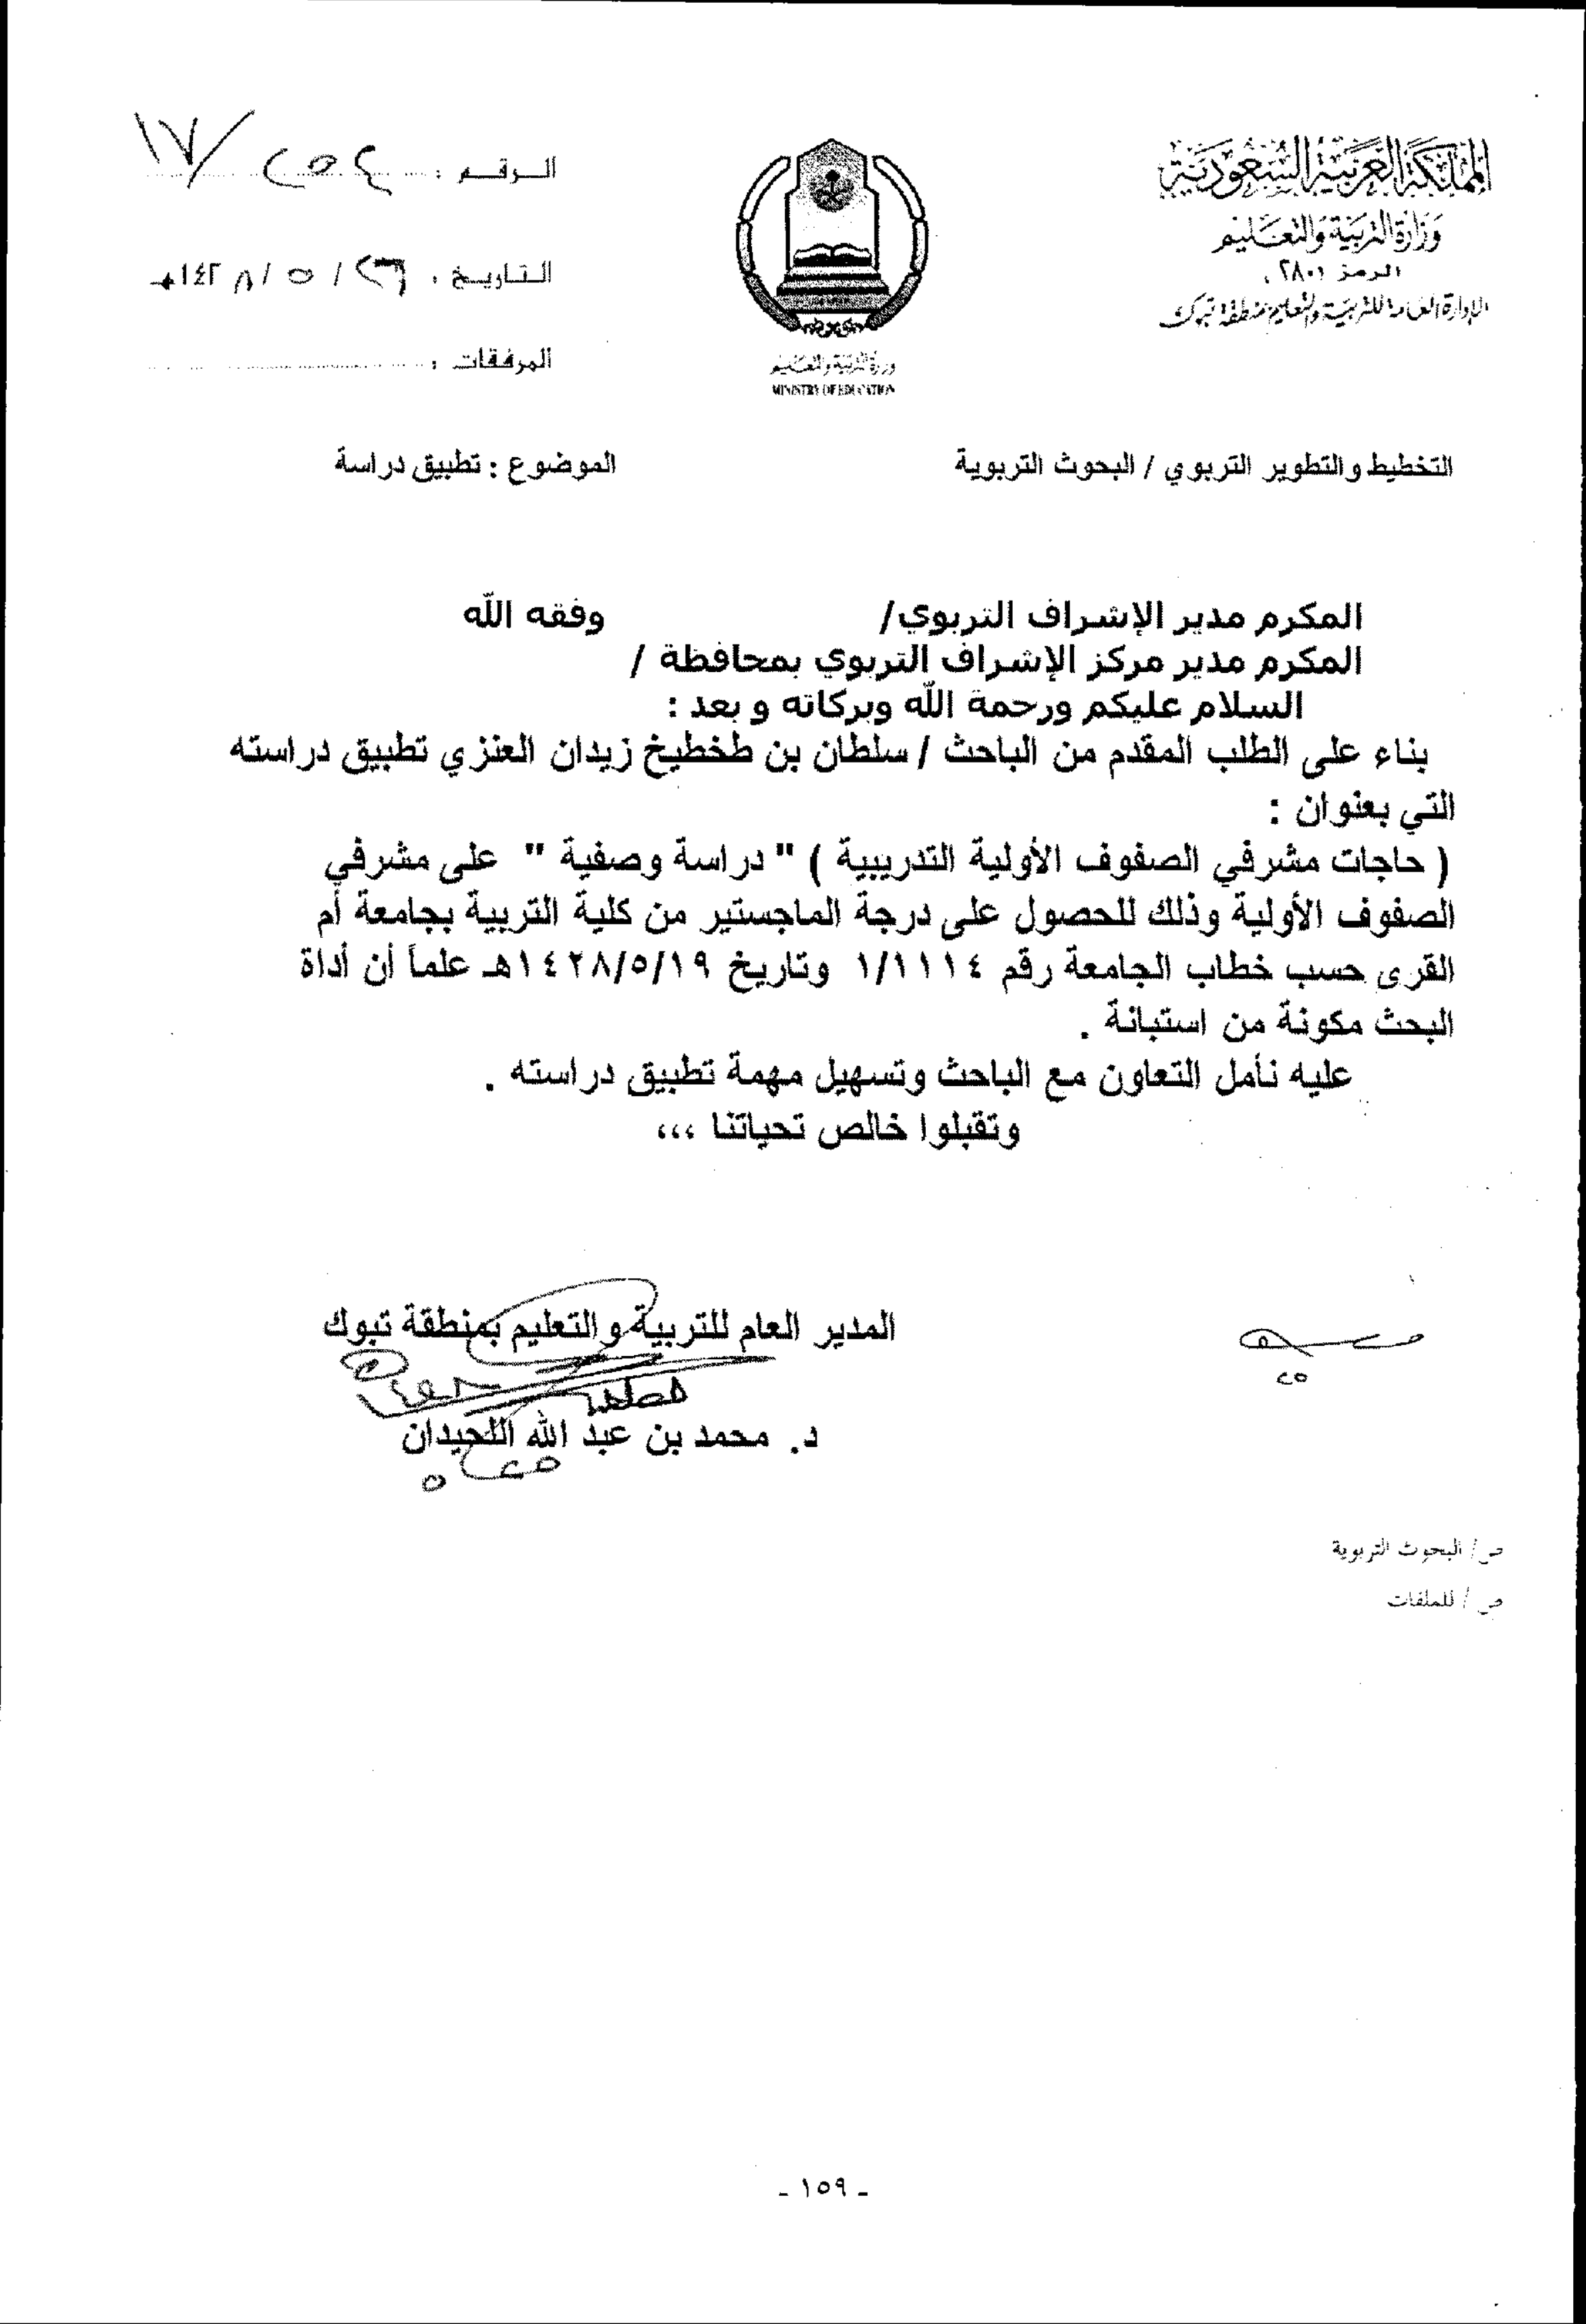 المملكة العربية السعودية
وزارة التربية والتعليم
الرمز ٢٨٠١
الإدارة العامة للتربية والتعليم بمنطقة تبوك
وزارة التربية والتعليم
MINISTRY OF EDUCATION
الرقم : ٢٥٤ / ١٧
التاريخ : ٢٦ / ٥ / ١٤٢٨هـ
المرفقات :
التخطيط والتطوير التربوي / البحوث التربوية
الموضوع : تطبيق دراسة
المكرم مدير الإشراف التربوي/ وفقه الله
المكرم مدير مركز الإشراف التربوي بمحافظة /
السلام عليكم ورحمة الله وبركاته و بعد :
بناء على الطلب المقدم من الباحث / سلطان بن طخطيخ زيدان العنزي تطبيق دراسته
التي بعنوان :
( حاجات مشرفي الصفوف الأولية التدريبية ) " دراسة وصفية " على مشرفي
الصفوف الأولية وذلك للحصول على درجة الماجستير من كلية التربية بجامعة أم
القرى حسب خطاب الجامعة رقم ١/١١١٤ وتاريخ ١٤٢٨/٥/١٩هـ علماً أن أداة
البحث مكونة من استبانة .
عليه نأمل التعاون مع الباحث وتسهيل مهمة تطبيق دراسته .
وتقبلوا خالص تحياتنا ،،،
المدير العام للتربية والتعليم بمنطقة تبوك
د. محمد بن عبد الله اللحيدان
ص/ البحوث التربوية
ص / للملفات
- ١٥٩ -